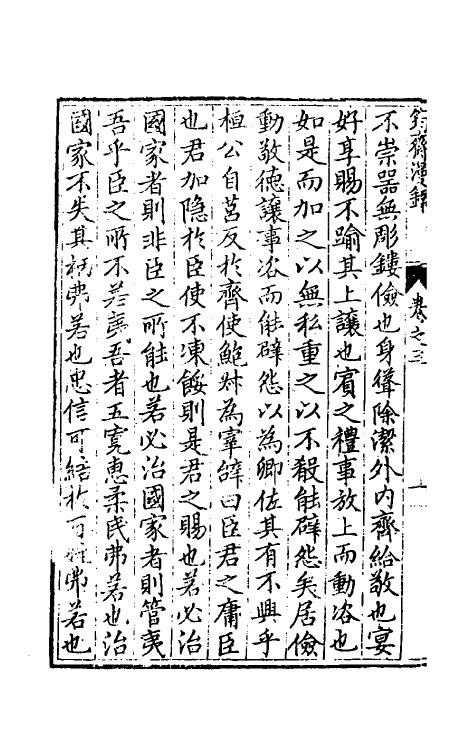 卷之三
不崇器無彫鏤儉也身聳除潔外內齊給敬也宴
好享賜不踰其上讓也賓之禮事放上而動咨也
如是而加之以無私重之以不殽能辟怨矣居儉
動敬德讓事咨而能辟怨以為卿佐其有不興乎
桓公自莒反於齊使鮑叔為宰辭曰臣君之庸臣
也君加隐於臣使不凍餒則是君之賜也若必治
國家者則非臣之所能也若必治國家者則管夷
吾乎臣之所不若夷吾者五寛惠柔民弗若也治
國家不失其柄弗若也忠信可結於百姓弗若也